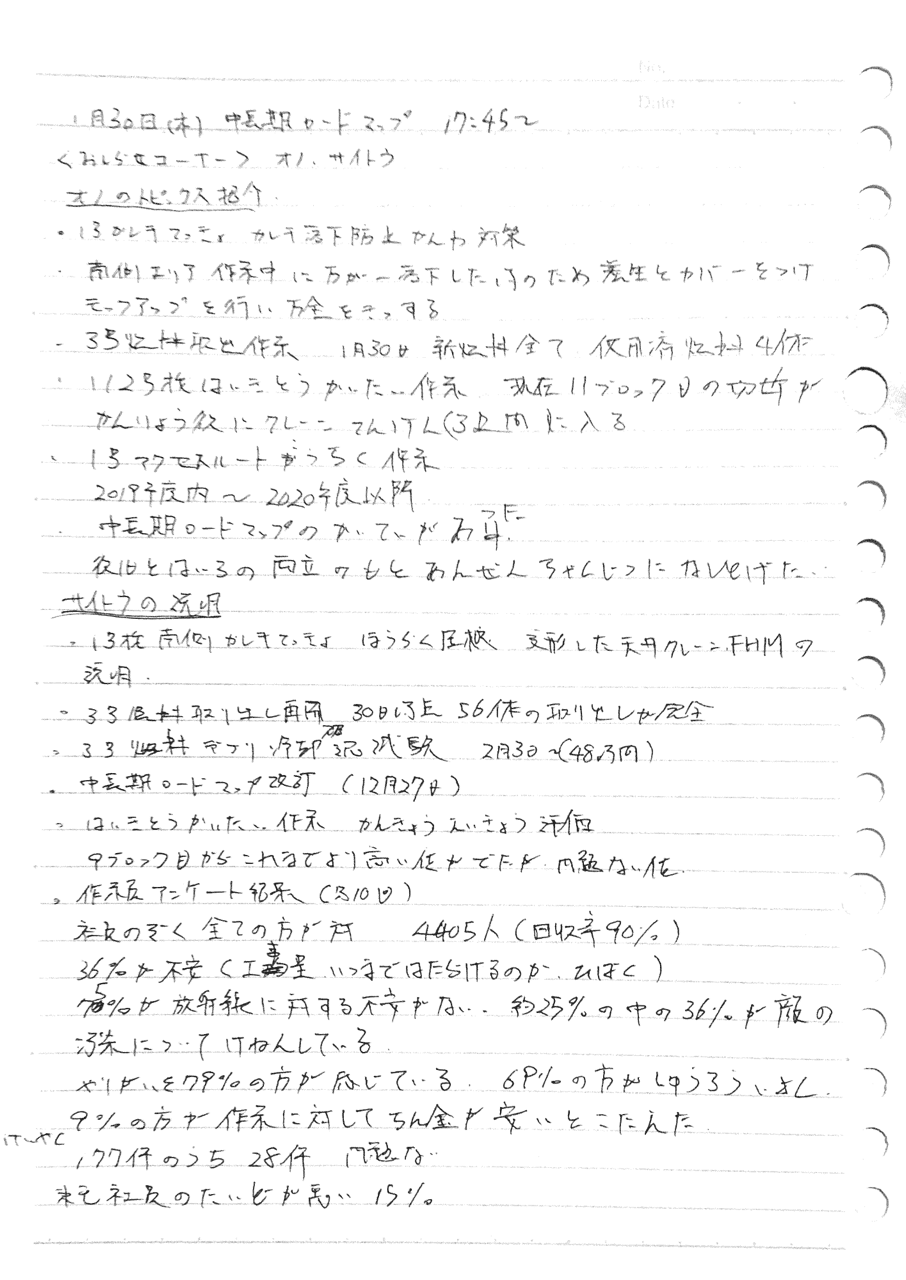 No.
Date
1月30日(木) 中長期ロードマップ 17:45〜
<おしらせコーナー> オノ、サイトウ
オノのトピックス紹介
・1号ガレキてっきょ ガレキ落下防止かんわ対策
・南側エリア作業中に万が一落下した時のため養生とカバーをつけ
モックアップを行い万全をきっする
・3号燃料取出作業 1月30日 新燃料全て 使用済燃料4体
・1/2号核はいきとうかいたい作業 現在11ブロック目の切断が
かんりょう後にクレーンてんけん(3週間)に入る
・1号アクセスルートこうちく作業
2019年度内〜2020年度以降
・中長期ロードマップのかいていがお
復旧とはいろの両立のもとあんぜんちゃくじつに
サイトウの説明
・1号核南側ガレキてっきょ ほうらく屋根 変形した天井クレーン、FHMの
説明.
・3号燃料取り出し再開 30日時点 56体の取り出しが完全
・3号燃料デブリ冷却 試験 2月30〜(48時間)
・中長期ロードマップ改訂 (12月27日)
・はいきとうかいたい作業 かんきょうえいきょう評価
9ブロック目からこれまでより高い値がでたが、問題ない値
・作業員アンケート結果 (第10回)
社員のぞく全ての方が対 4405人(回収率90%)
36%が不安(工事量 いつまではたらけるのか、ひばく)
75%が放射線に対する不安がない、約25%の中の36%が顔の
汚染についてけねんしている
やりがいを79%の方が感じている、69%の方がしゅうろういよく
9%の方が作業に対してちん金が安いとこたえた
けいやく
177件のうち28件 問題ない
東電社員のたいどが悪い 15%